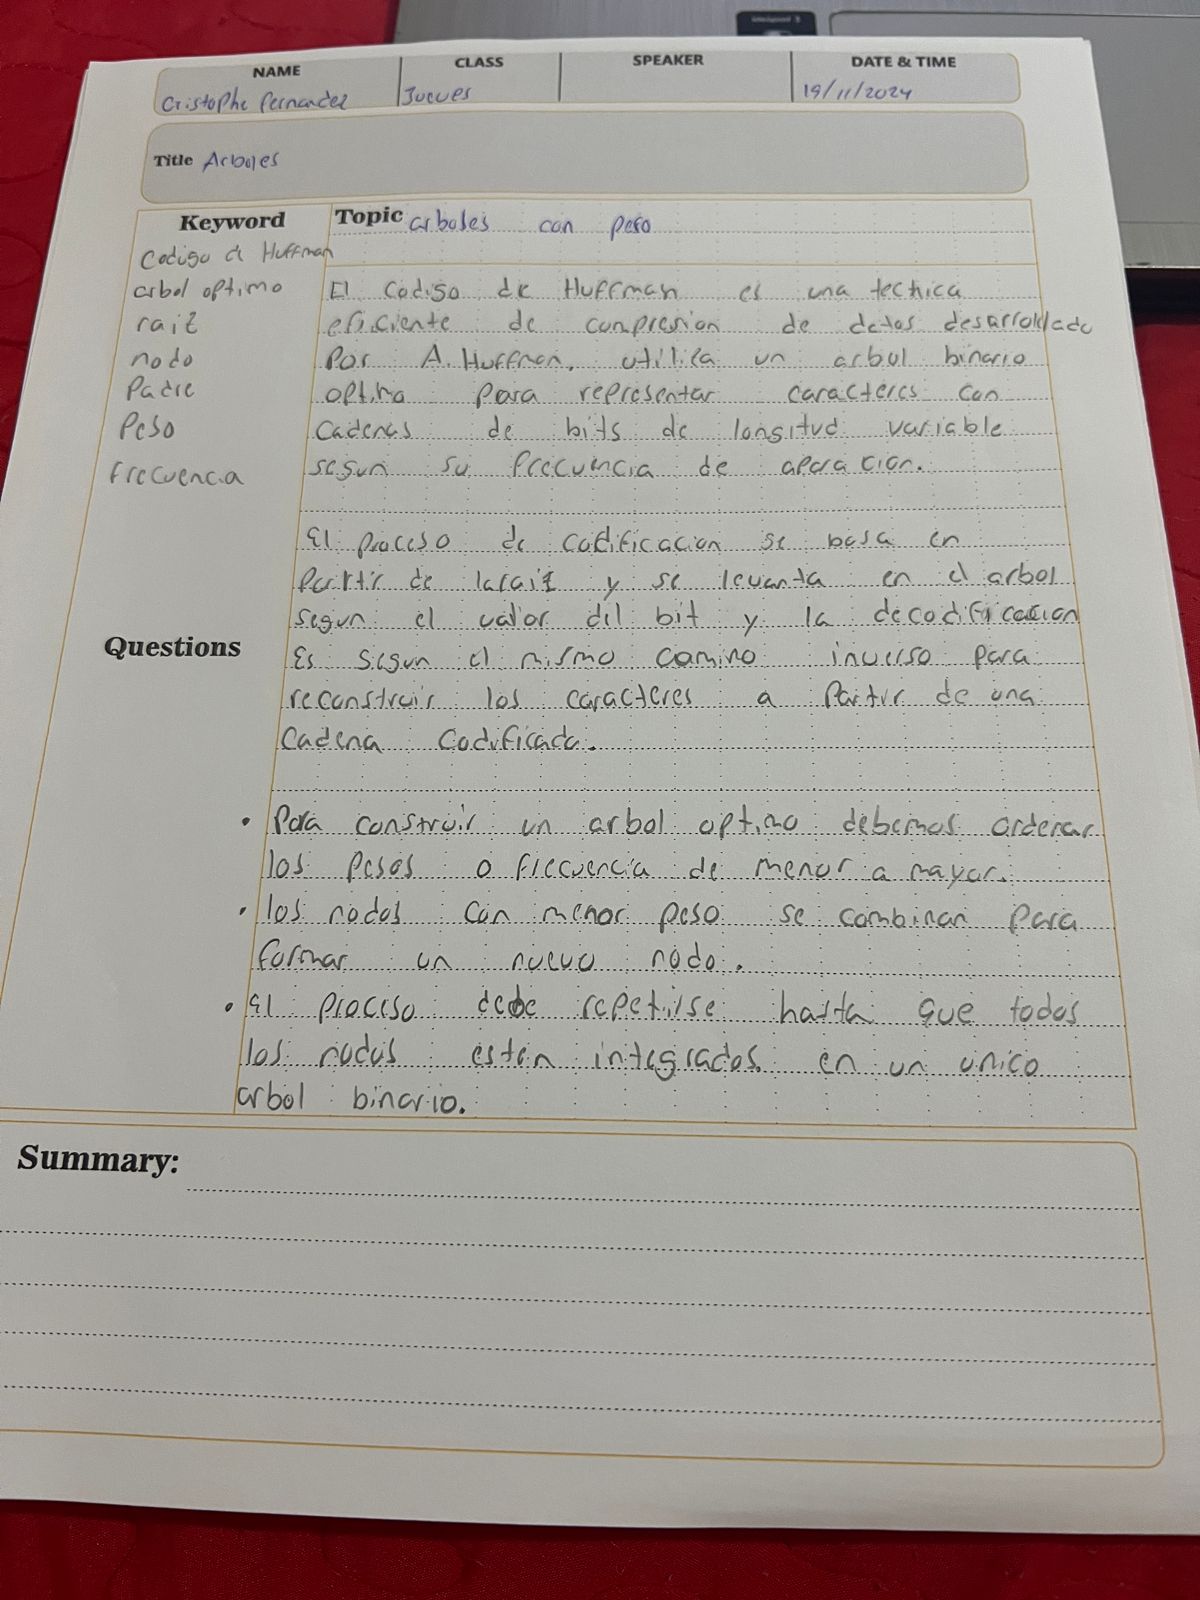 NAME CLASS SPEAKER DATE & TIME
Cristophe Fernandez Jueves 19/11/2024
Title Arboles
Keyword
Codigo de Huffman
arbol optimo
raiz
nodo
Padre
Peso
Frecuencia
Questions
Topic arboles con peso
El Codigo de Huffman es una technica
eficiente de compresion de datos desarrollado
Por A. Huffman, utiliza un arbol binario
optimo para representar caracteres con
Cadenas de bits de longitud variable
segun su frecuencia de aparacion.
El proceso de codificacion se basa en
Partir de la raiz y se levanta en el arbol
segun el valor del bit y la decodificacion
Es segun el mismo camino inverso para
reconstruir los caracteres a Partir de una
Cadena Codificada.
• Para construir un arbol optimo debemos ordenar
los pesos o frecuencia de menor a mayor.
• los nodos con menor peso se combinan para
formar un nuevo nodo.
• El proceso debe repetirse hasta que todos
los nodos esten integrados en un unico
arbol binario.
Summary: